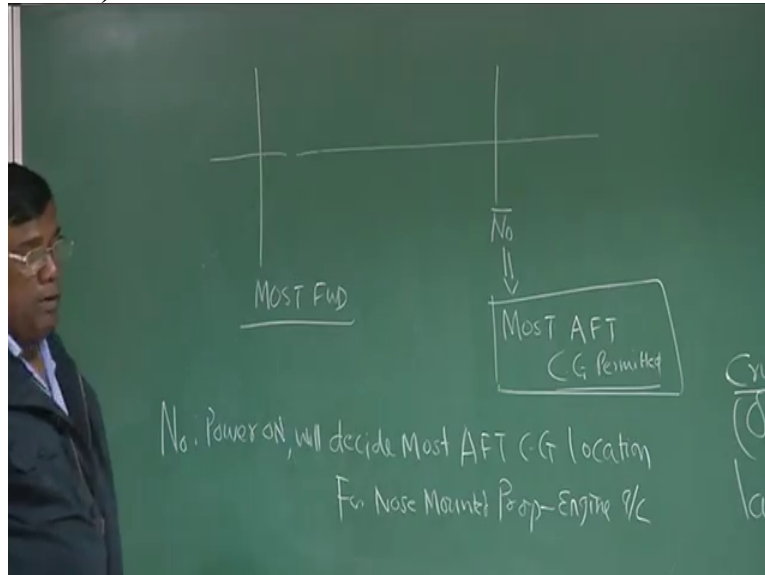 N̅o
MOST FWD
MOST AFT
CG Permitted
No: Power ON, will decide Most AFT C.G location
For Nose Mounted Prop-Engine A/C